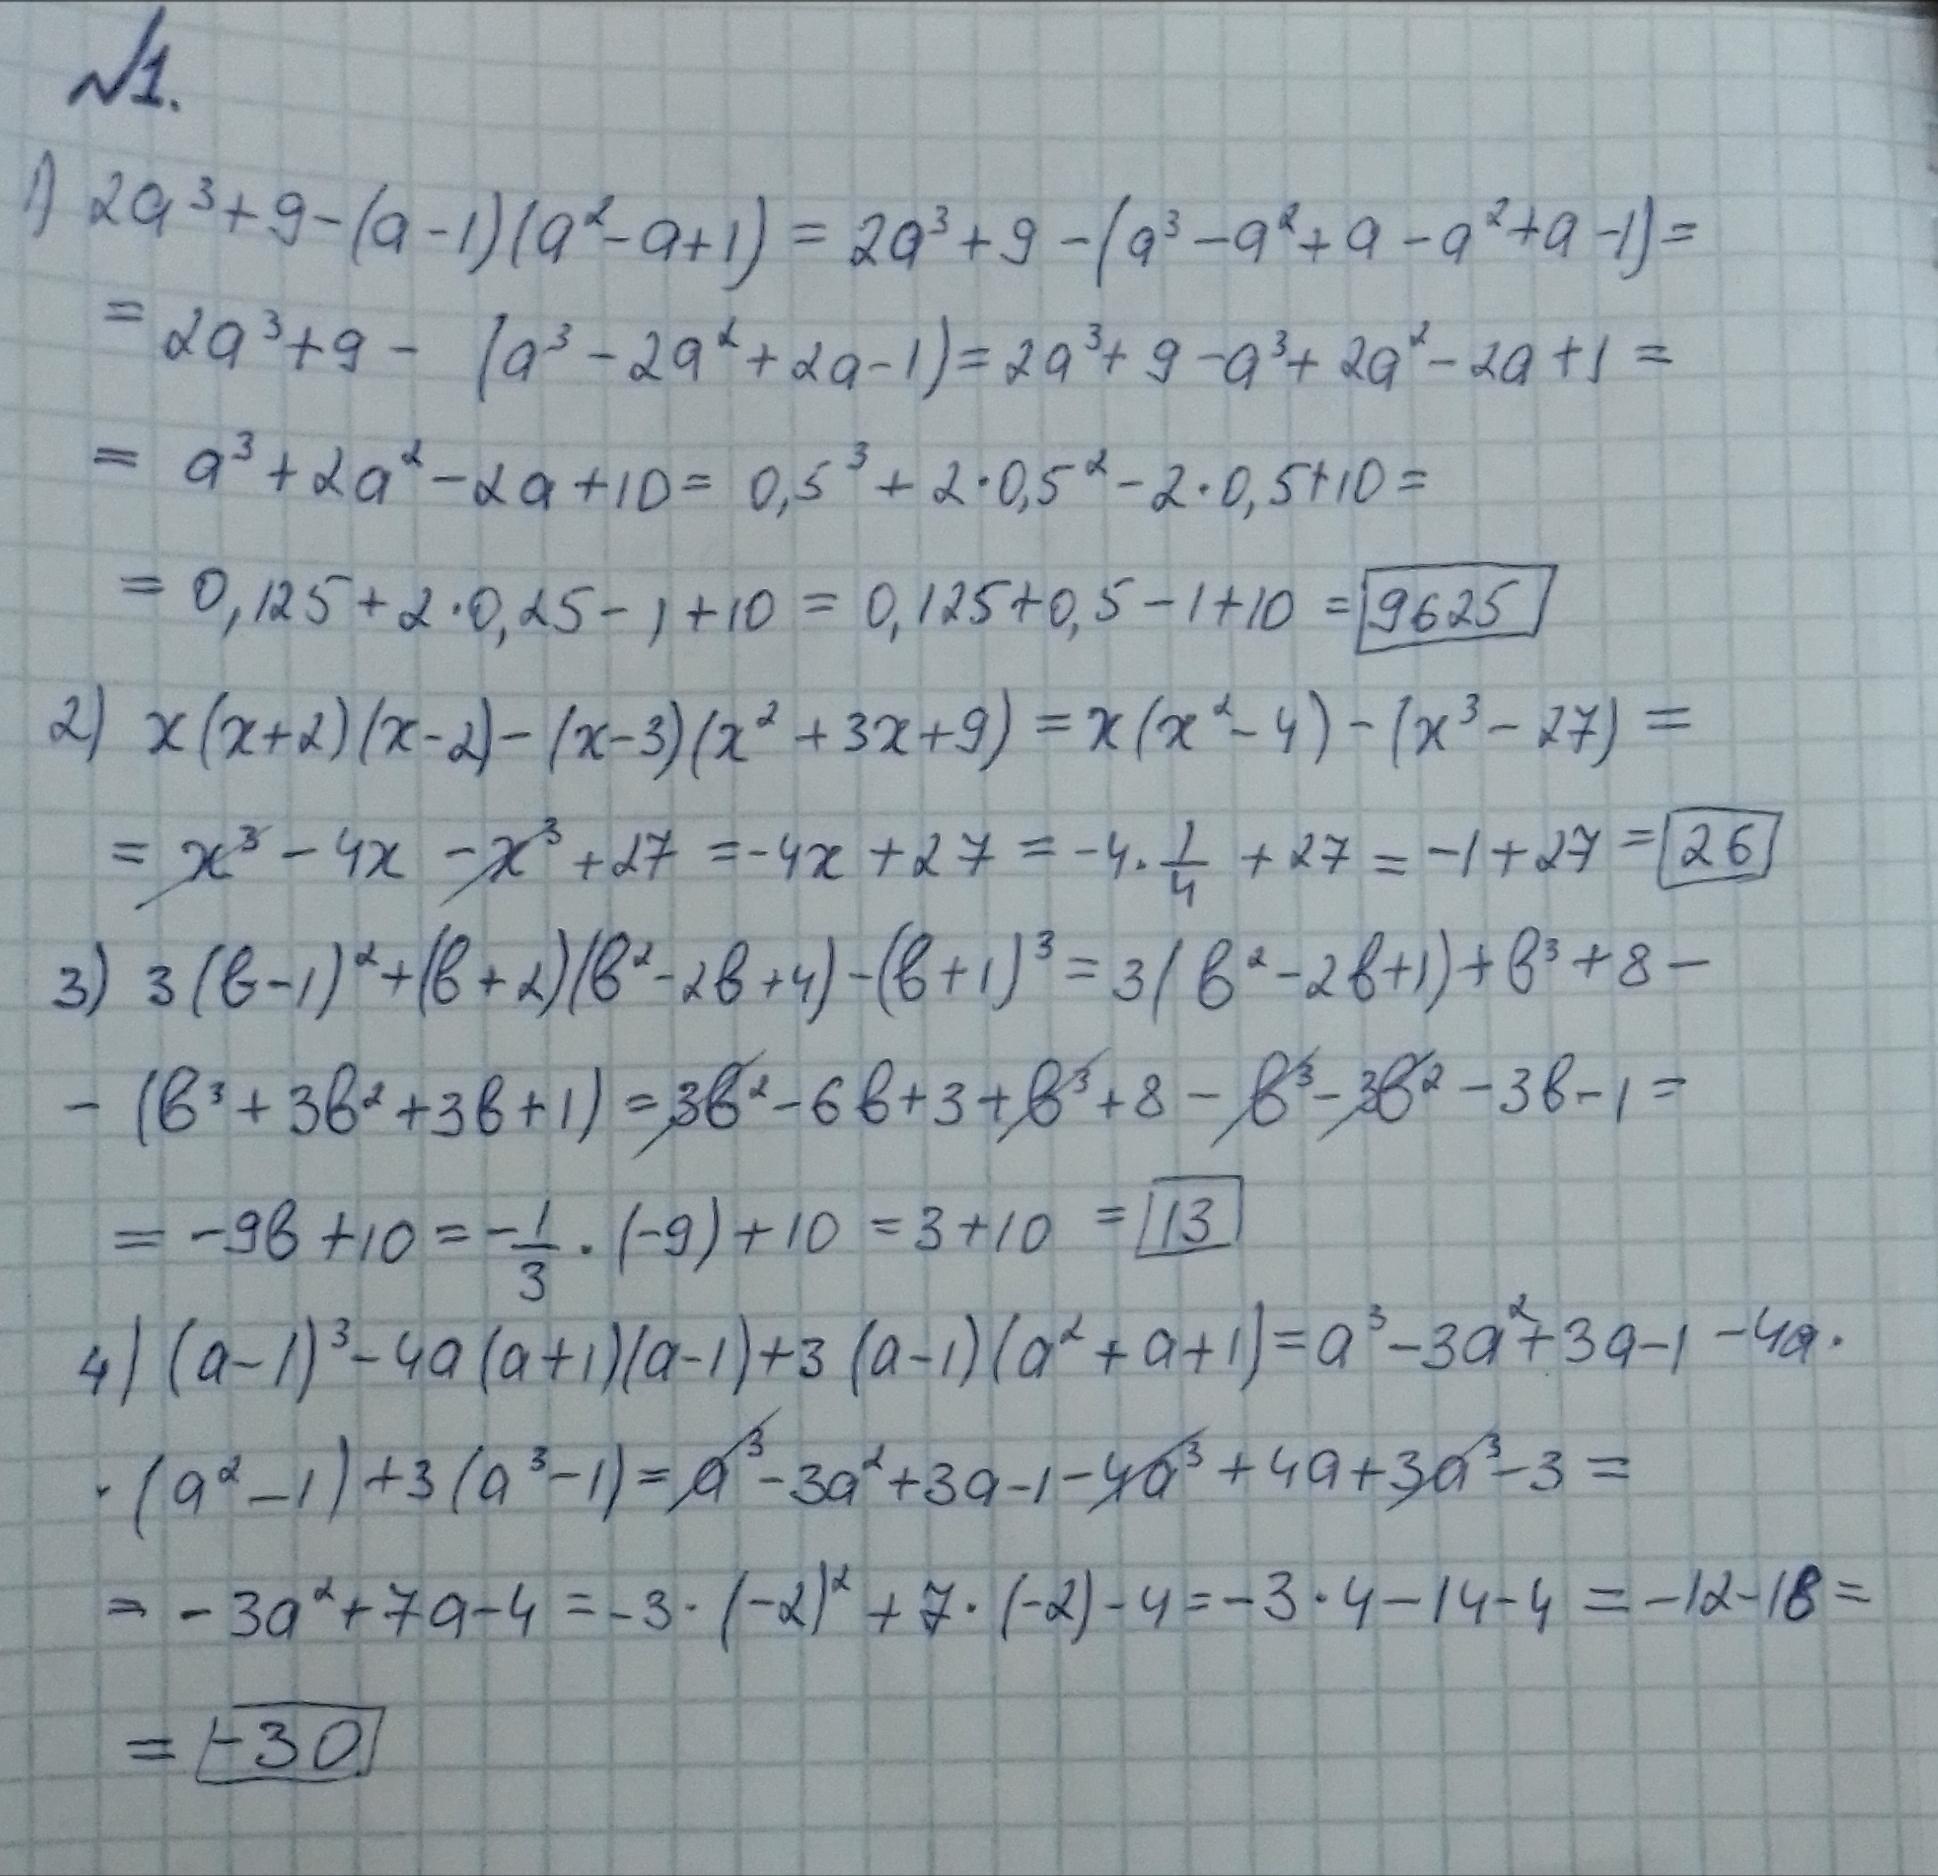 №1.
1) 2a³+9-(a-1)(a²-a+1)=2a³+9-(a³-a²+a-a²+a-1)=
=2a³+9-(a³-2a²+2a-1)=2a³+9-a³+2a²-2a+1=
=a³+2a²-2a+10=0,5³+2·0,5²-2·0,5+10=
=0,125+2·0,25-1+10=0,125+0,5-1+10=9625
2) x(x+2)(x-2)-(x-3)(x²+3x+9)=x(x²-4)-(x³-27)=
=x³-4x-x³+27=-4x+27=-4·1/4+27=-1+27=26
3) 3(в-1)²+(в+2)(в²-2в+4)-(в+1)³=3(в²-2в+1)+в³+8-
-(в³+3в²+3в+1)=3в²-6в+3+в³+8-в³-3в²-3в-1=
=-9в+10=-1/3·(-9)+10=3+10=13
4) (a-1)³-4a(a+1)(a-1)+3(a-1)(a²+a+1)=a³-3a²+3a-1-4a·
·(a²-1)+3(a³-1)=a³-3a²+3a-1-4a³+4a+3a³-3=
=-3a²+7a-4=-3·(-2)²+7·(-2)-4=-3·4-14-4=-12-18=
=-30